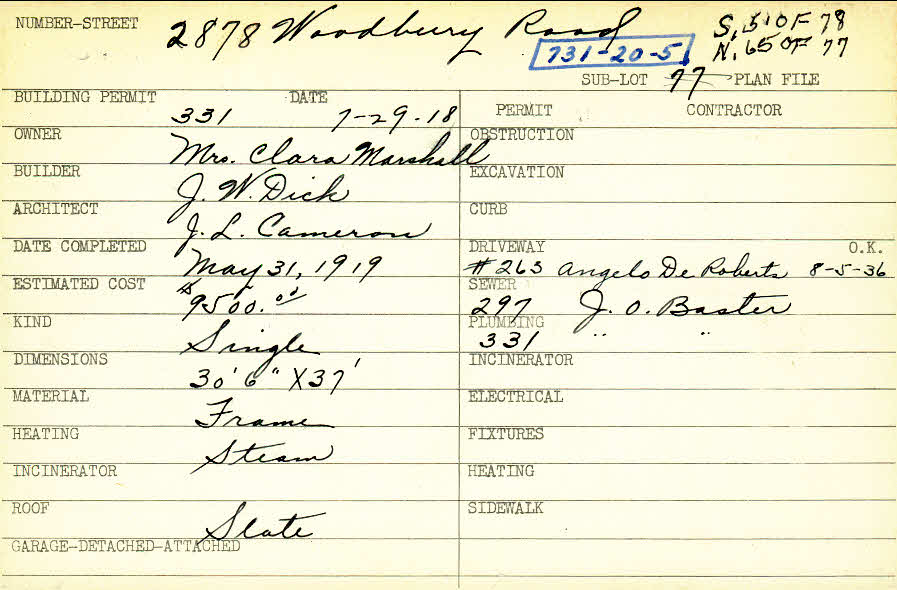 NUMBER-STREET 2878 Woodbury Road S. 5' OF 78
731-20-5 N. 65 OF 77
SUB-LOT 77 PLAN FILE
BUILDING PERMIT 331 DATE 7-29-18
PERMIT CONTRACTOR
OWNER Mrs. Clara Marshall
OBSTRUCTION
BUILDER J. W. Dick
EXCAVATION
ARCHITECT J. L. Cameron
CURB
DATE COMPLETED May 31, 1919
DRIVEWAY #263 Angelo De Roberts 8-5-36 O.K.
ESTIMATED COST $9500.00
SEWER 297 J. O. Baster
KIND Single
PLUMBING 331 " "
DIMENSIONS 30' 6" X 37'
INCINERATOR
MATERIAL Frame
ELECTRICAL
HEATING Steam
FIXTURES
INCINERATOR
HEATING
ROOF Slate
SIDEWALK
GARAGE-DETACHED-ATTACHED